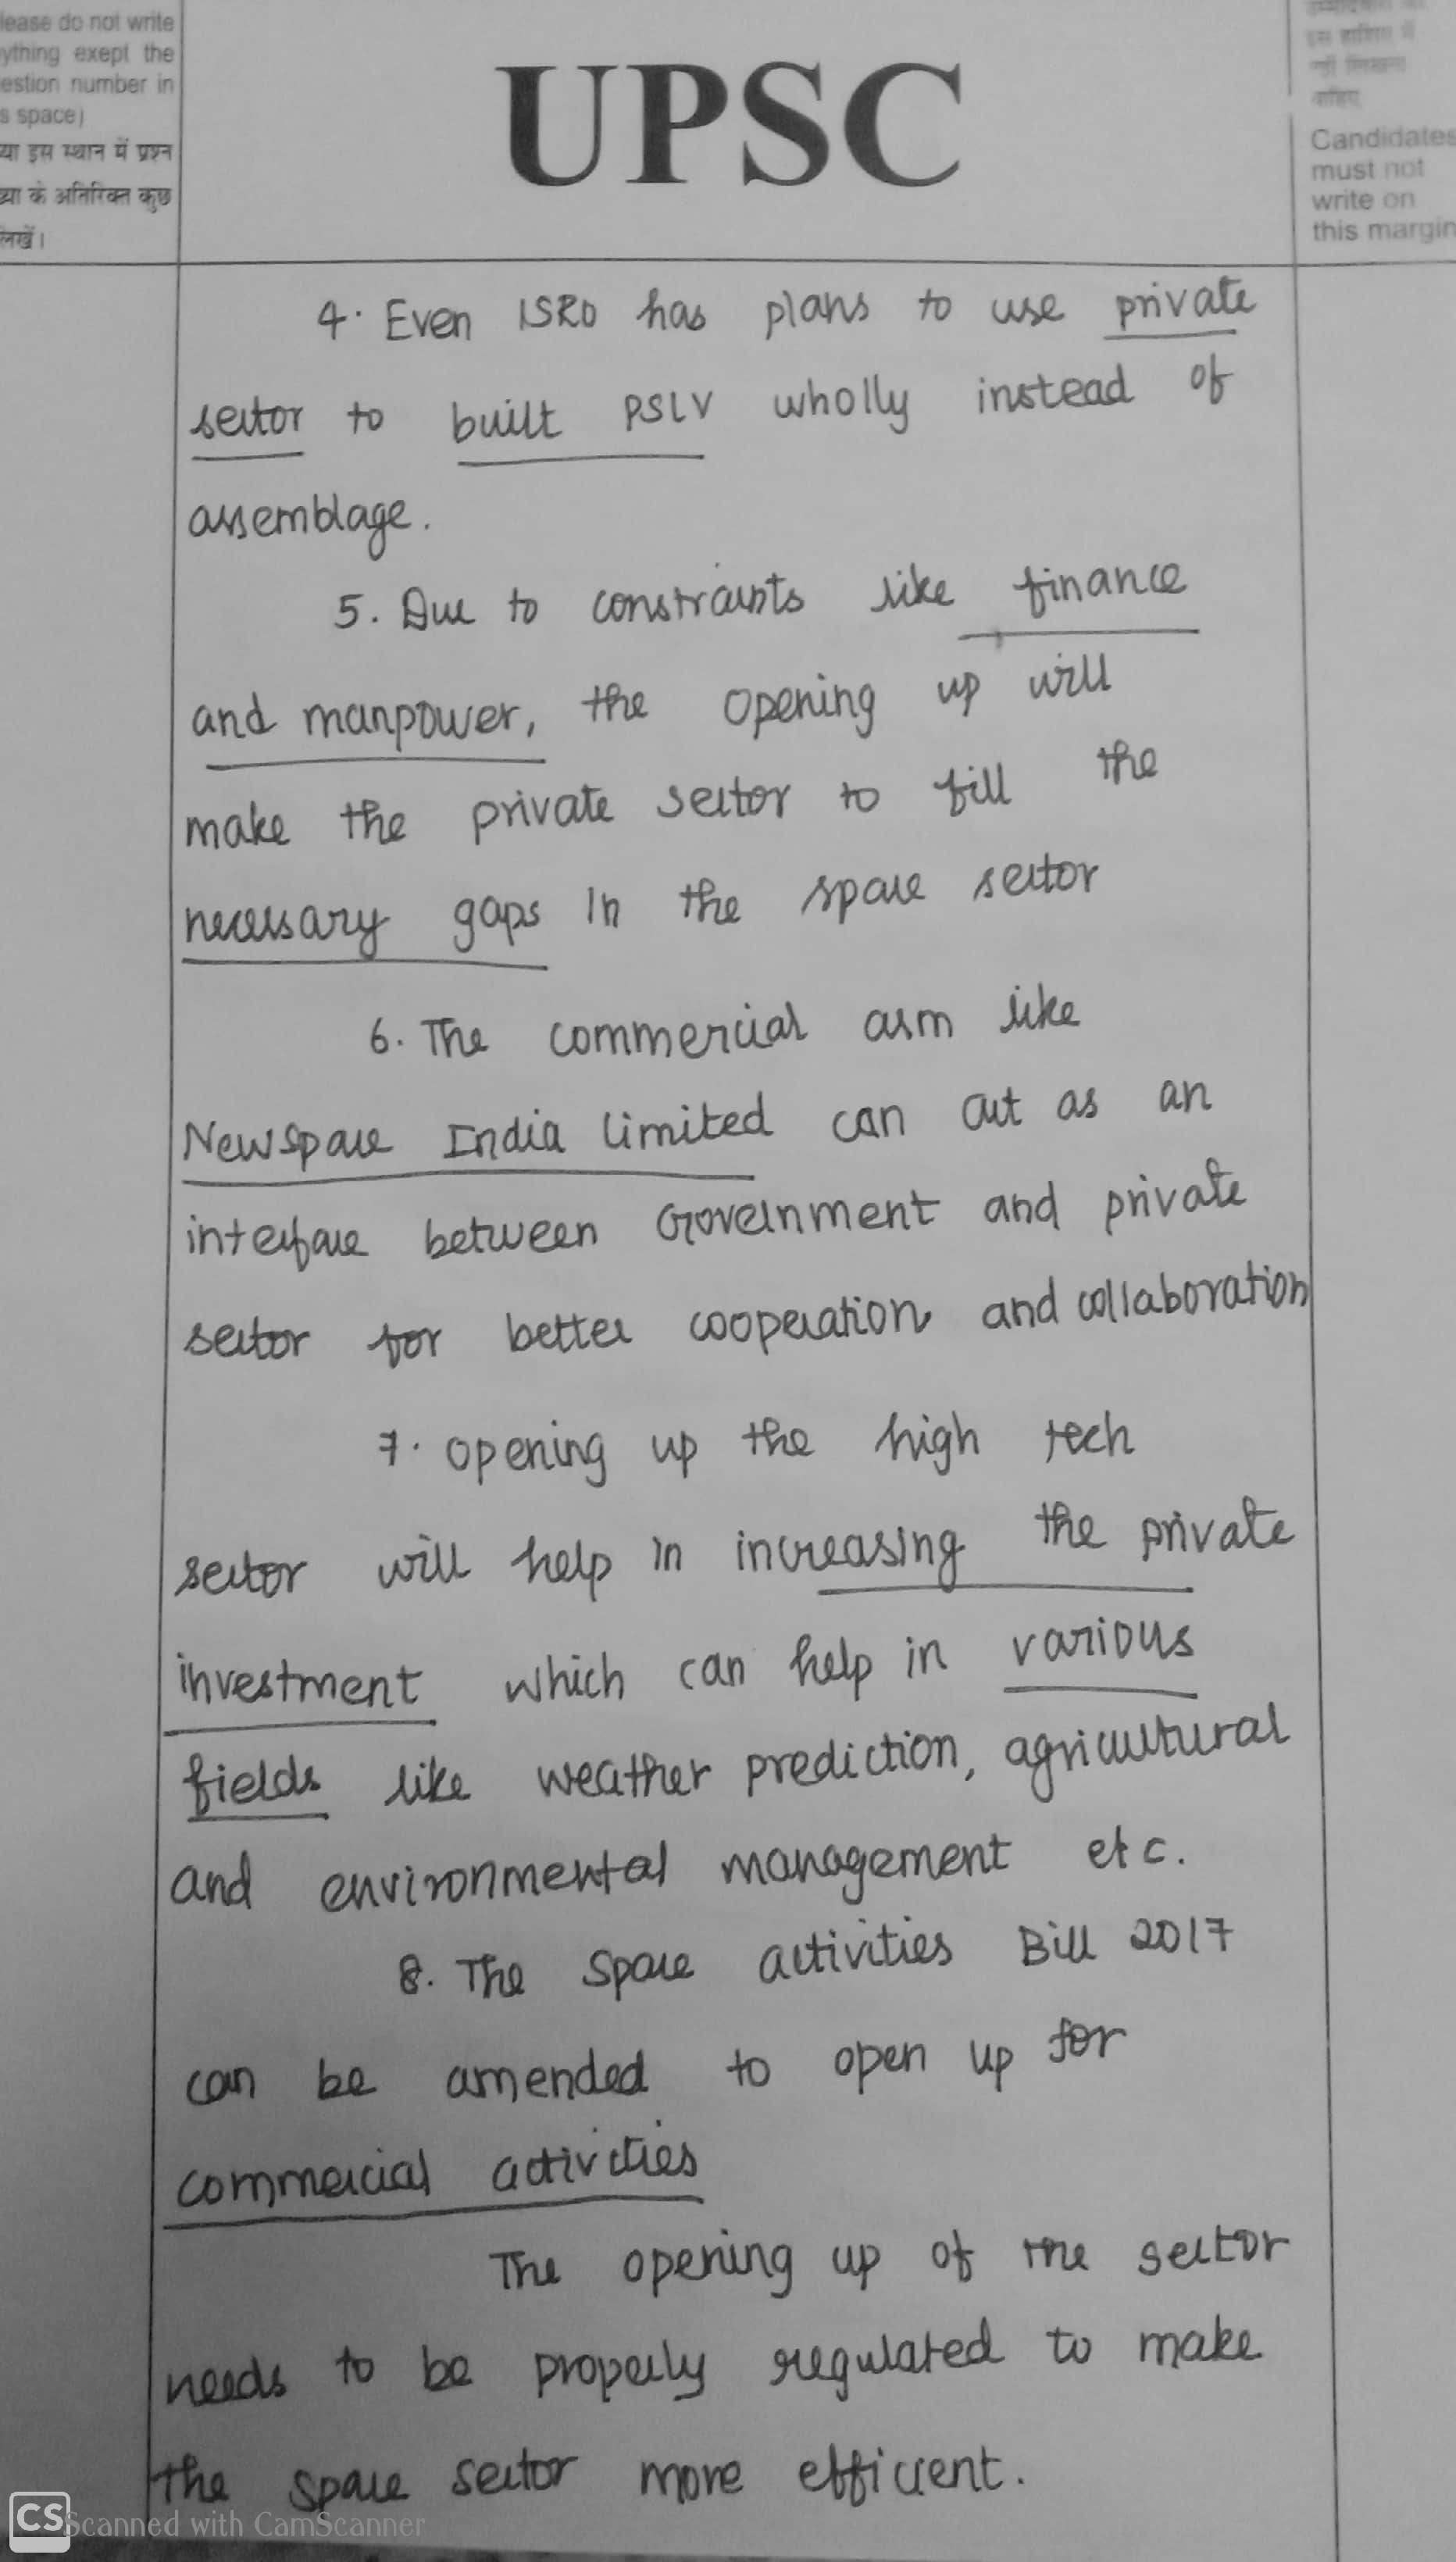 lease do not write
ything exept the
estion number in
s space)
या इस स्थान में प्रश्न
ख्या के अतिरिक्त कुछ
लिखें।
UPSC
इस हाशिए में
नहीं लिखना
चाहिए
Candidates
must not
write on
this margin
4. Even ISRO has plans to use private
sector to built PSLV wholly instead of
assemblage.
5. Due to constraints like finance
and manpower, the opening up will
make the private sector to fill the
necessary gaps in the space sector
6. The commercial arm like
Newspace India limited can act as an
interface between Government and private
sector for better cooperation and collaboration
7. opening up the high tech
sector will help in increasing the private
investment which can help in various
fields like weather prediction, agricultural
and environmental management etc.
8. The Space activities Bill 2017
can be amended to open up for
commercial activities
The opening up of the sector
needs to be properly regulated to make
the space sector more efficient.
CS Scanned with CamScanner